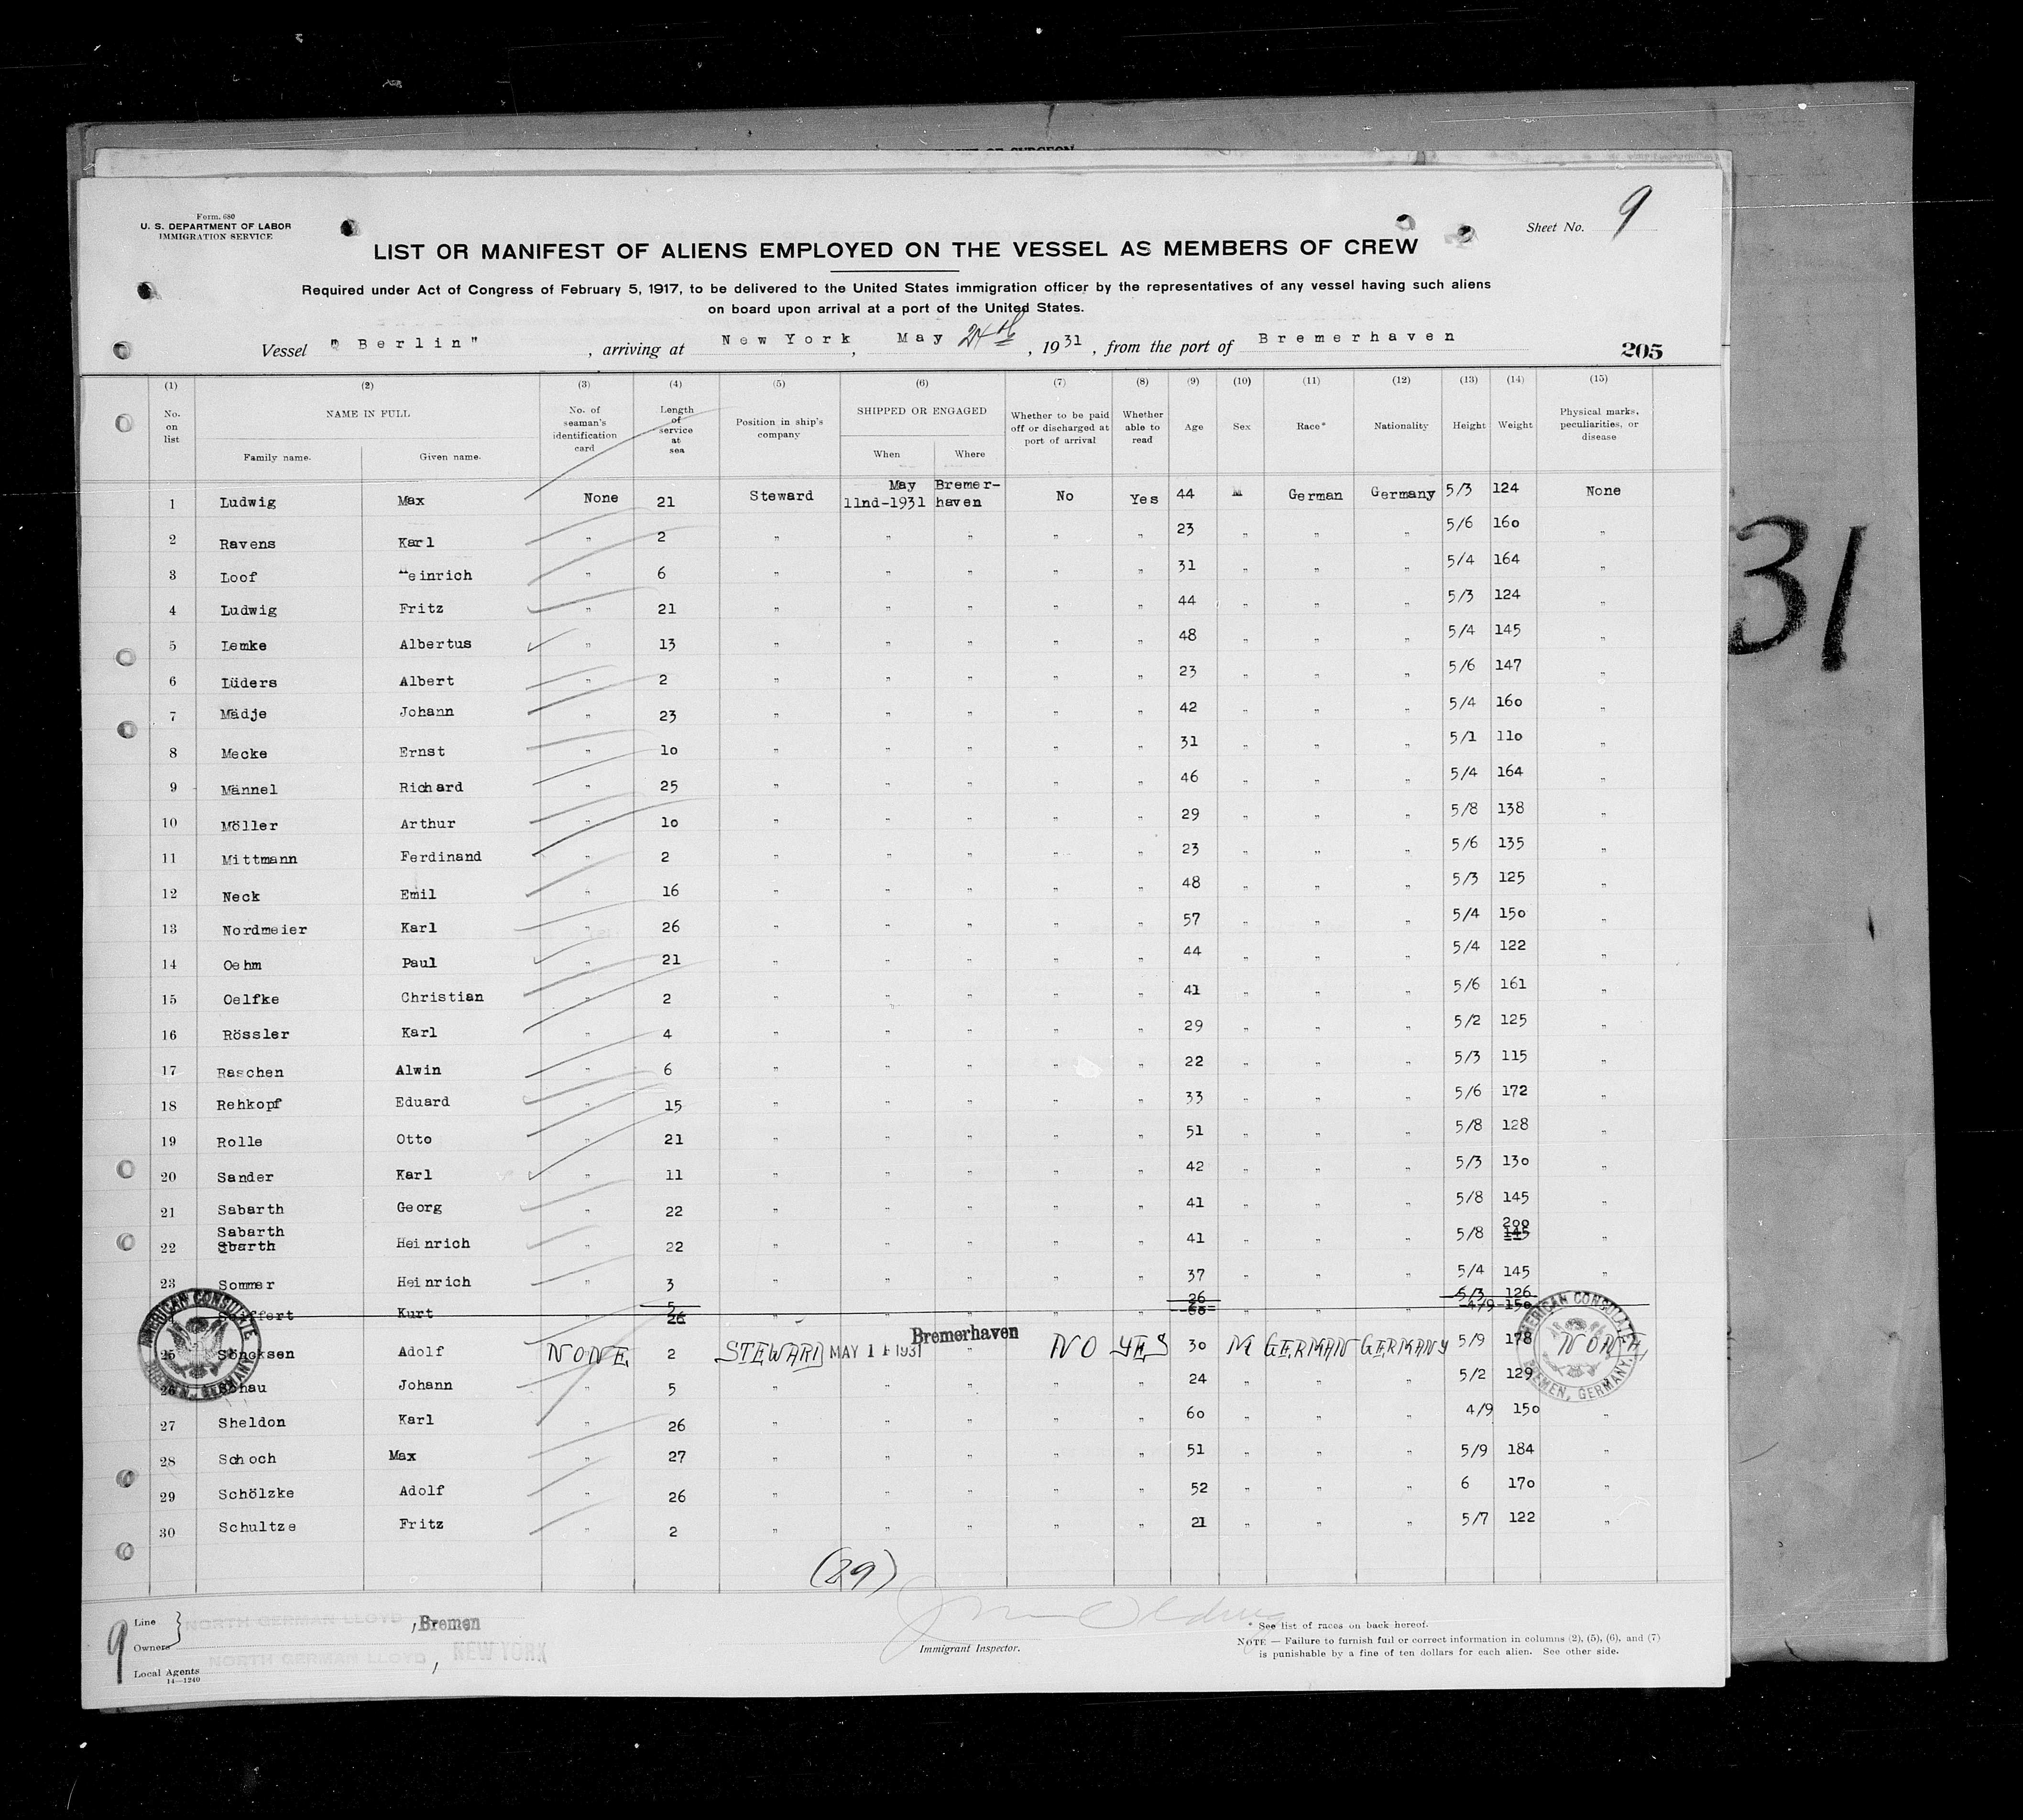 Form. 680
U. S. DEPARTMENT OF LABOR
IMMIGRATION SERVICE
Sheet No. 9
LIST OR MANIFEST OF ALIENS EMPLOYED ON THE VESSEL AS MEMBERS OF CREW
Required under Act of Congress of February 5, 1917, to be delivered to the United States immigration officer by the representatives of any vessel having such aliens
on board upon arrival at a port of the United States.
Vessel "Berlin" , arriving at New York , May 24th , 1931 , from the port of Bremerhaven
205
(1) (2) (3) (4) (5) (6) (7) (8) (9) (10) (11) (12) (13) (14) (15)
No. on list NAME IN FULL Family name. Given name. No. of seaman's identification card Length of service at sea Position in ship's company SHIPPED OR ENGAGED When Where Whether to be paid off or discharged at port of arrival Whether able to read Age Sex Race* Nationality Height Weight Physical marks, peculiarities, or disease
1 Ludwig Max None 21 Steward May 11nd-1931 Bremer-haven No Yes 44 M German Germany 5/3 124 None
2 Ravens Karl " 2 " " " " " 23 " " " 5/6 160 "
3 Loof Heinrich " 6 " " " " " 31 " " " 5/4 164 "
4 Ludwig Fritz " 21 " " " " " 44 " " " 5/3 124 "
5 Lemke Albertus " 13 " " " " " 48 " " " 5/4 145 "
6 Lüders Albert " 2 " " " " " 23 " " " 5/6 147 "
7 Mädje Johann " 23 " " " " " 42 " " " 5/4 160 "
8 Mecke Ernst " 10 " " " " " 31 " " " 5/1 110 "
9 Männel Richard " 25 " " " " " 46 " " " 5/4 164 "
10 Möller Arthur " 10 " " " " " 29 " " " 5/8 138 "
11 Mittmann Ferdinand " 2 " " " " " 23 " " " 5/6 135 "
12 Neck Emil " 16 " " " " " 48 " " " 5/3 125 "
13 Nordmeier Karl " 26 " " " " " 57 " " " 5/4 150 "
14 Oehm Paul " 21 " " " " " 44 " " " 5/4 122 "
15 Oelfke Christian " 2 " " " " " 41 " " " 5/6 161 "
16 Rössler Karl " 4 " " " " " 29 " " " 5/2 125 "
17 Raschen Alwin " 6 " " " " " 22 " " " 5/3 115 "
18 Rehkopf Eduard " 15 " " " " " 33 " " " 5/6 172 "
19 Rolle Otto " 21 " " " " " 51 " " " 5/8 128 "
20 Sander Karl " 11 " " " " " 42 " " " 5/3 130 "
21 Sabarth Georg " 22 " " " " " 41 " " " 5/8 145 "
Sabarth 200
22 Sbarth Heinrich " 22 " " " " " 41 " " " 5/8 145 "
23 Sommer Heinrich " 3 " " " " " 37 " " " 5/4 145 "
5 26 5/3 126
Kurt 26 60 4/9 150
25 Söncksen Adolf NONE 2 STEWARD MAY 11 1931 Bremerhaven NO YES 30 M GERMAN GERMANY 5/9 178 NONE
26 Johann " 5 " " " " " 24 " " " 5/2 129
27 Sheldon Karl " 26 " " " " " 60 " " " 4/9 150 "
28 Schoch Max " 27 " " " " " 51 " " " 5/9 184 "
29 Schölzke Adolf " 26 " " " " " 52 " " " 6 170 "
30 Schultze Fritz " 2 " " " " " 21 " " " 5/7 122 "
AMERICAN CONSULATE BREMEN, GERMANY.
AMERICAN CONSULATE BREMEN, GERMANY.
(29)
9
Line NORTH GERMAN LLOYD , Bremen
Owners
Local Agents NORTH GERMAN LLOYD , NEW YORK
14—1240
Immigrant Inspector.
* See list of races on back hereof.
NOTE — Failure to furnish full or correct information in columns (2), (5), (6), and (7)
is punishable by a fine of ten dollars for each alien. See other side.
31